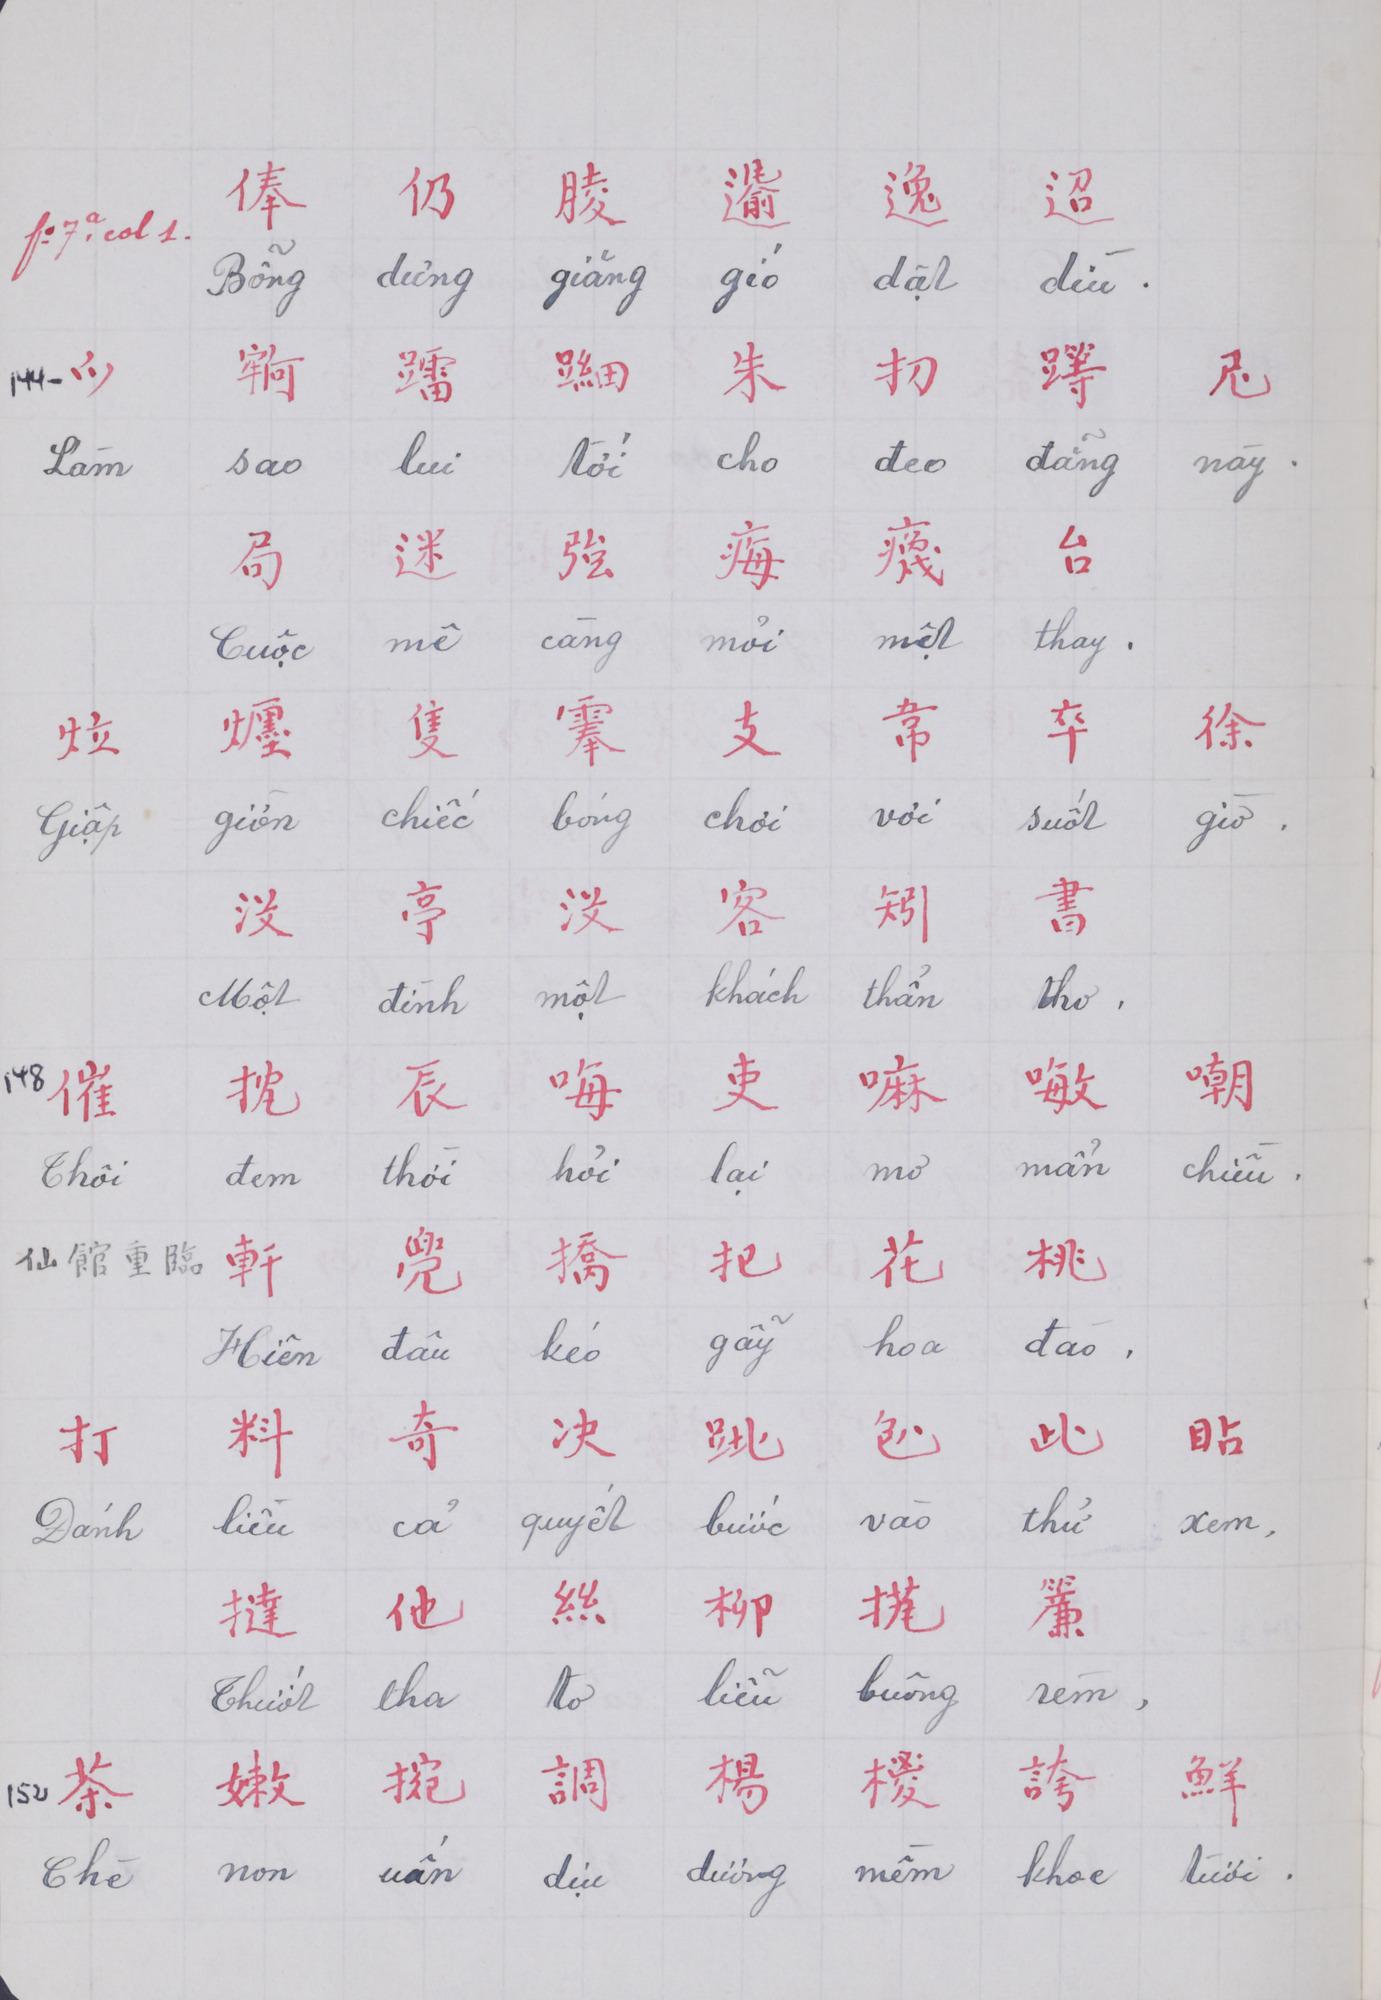 fo 7a. col 1. 俸 仍 𦝄 𨗺 逸 迢
Bỗng dưng giăng gió dặt dìu.
144- 𪜀 𡨺 蹓 𨀾 朱 㧅 蹲 尼
Làm sao lui tới cho đeo đẳng này.
局 迷 强 痗 𤻻 台
Cuộc mê càng mỏi mệt thay.
㕸 𤑟 隻 䨦 支 常 卒 徐
Giập giờn chiếc bóng chơi vơi suốt giờ,
没 亭 没 客 矧 書
Một đình một khách thẩn thơ,
148 催 抌 辰 嗨 吏 嘛 𠾦 嘲
Thôi đem thời hỏi lại mơ mẩn chiều.
仙館重臨 軒 兜 撟 把 花 桃
Hiên đâu kéo gẫy hoa đào,
打 料 奇 决 跐 𠓨 此 貼
Đánh liều cả quyết bước vào thử xem,
撻 他 絲 柳 㧣 簾
Thướt tha tơ liễu buông rèm,
152 茶 嫩 捥 調 楊 㮌 誇 鮮
Chè non uấn dịu dương mềm khoe tươi.